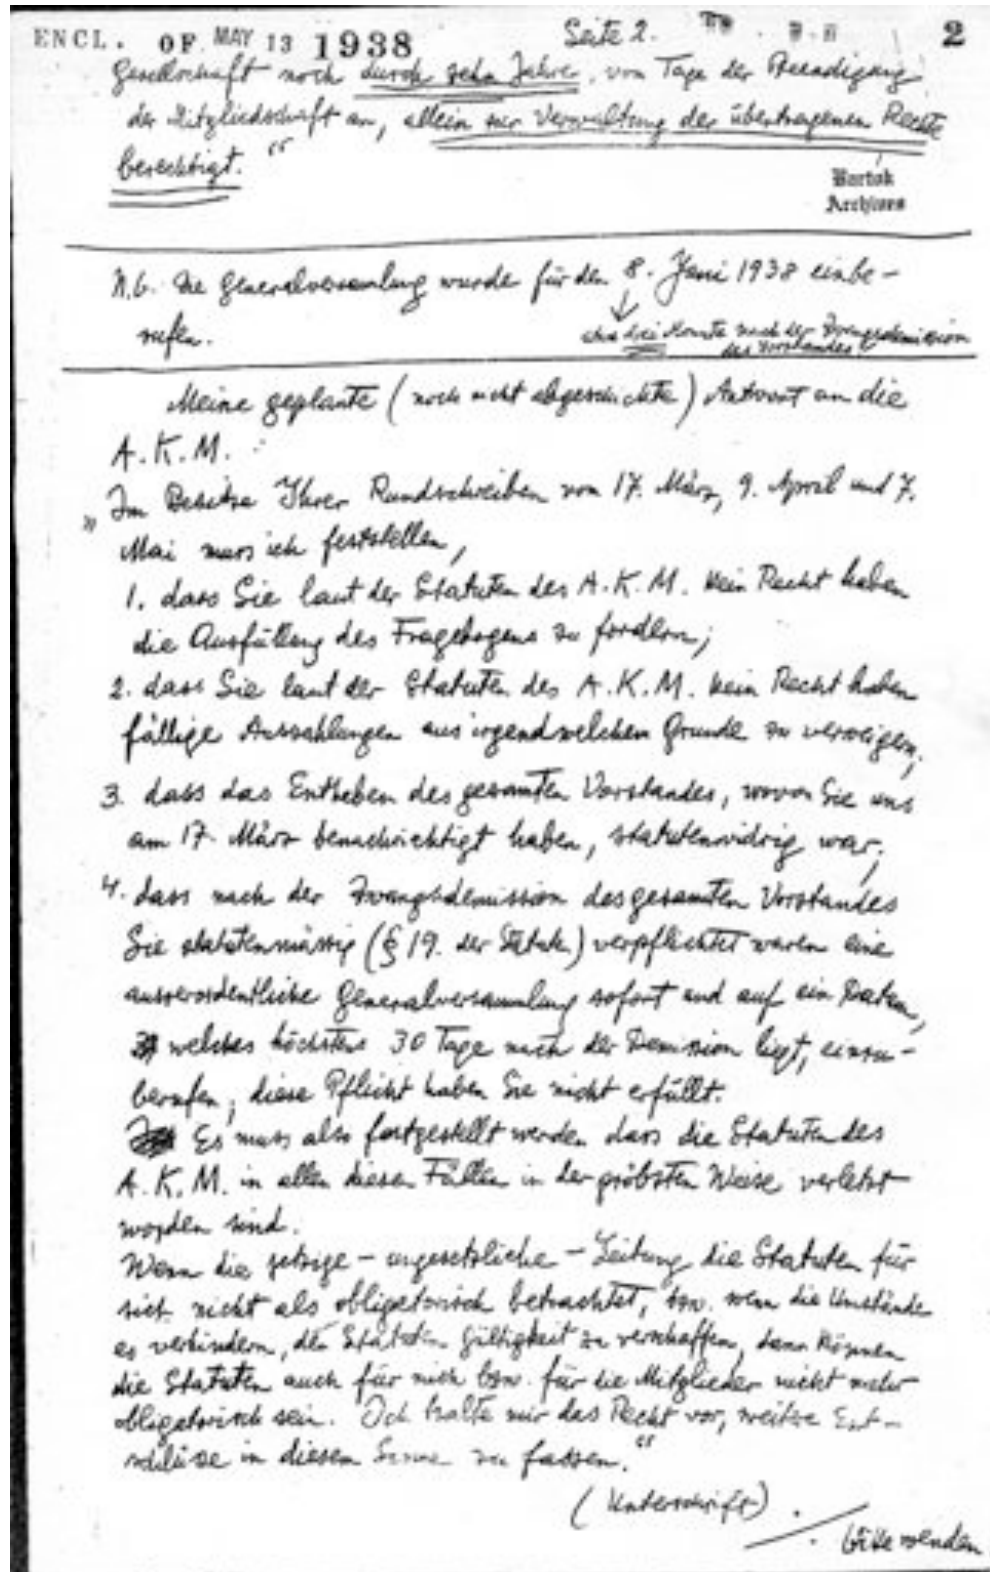 ENCL. OF MAY 13 1938 Seite 2. 2
Gesellschaft noch durch zehn Jahre, vom Tage der Beendigung
der Mitgliedschaft an, allein zur Verwaltung der übertragenen Rechte
berechtigt."
Bartók
Archives
N.b. Die Generalversamlung wurde für den 8. Juni 1938 einbe-
rufen.
drei Monate nach der Zwangsdemission
des Vorstandes
Meine geplante (noch nicht abgeschickte) Antwort an die
A.K.M.:
„Im Besitze Ihrer Rundschreiben vom 17. März, 9. April und 7.
Mai muss ich feststellen,
1. dass Sie laut der Statuten des A.K.M. kein Recht haben
die Ausfüllung des Fragebogens zu fordern;
2. dass Sie laut der Statuten des A.K.M. kein Recht haben
fällige Auszahlungen aus irgendwelchem Grunde zu verweigern;
3. dass das Entheben des gesamten Vorstandes, wovon Sie uns
am 17. März benachrichtigt haben, statutenwidrig war;
4. dass nach der Zwangsdemission des gesamten Vorstandes
Sie statutenmässig (§ 19. der Statuten) verpflichtet waren eine
ausserordentliche Generalversammlung sofort und auf ein Datum,
welches höchstens 30 Tage nach der Demission liegt, einzu-
berufen; diese Pflicht haben Sie nicht erfüllt.
Es muss also festgestellt werden dass die Statuten des
A.K.M. in allen diesen Fällen in der gröbsten Weise verletzt
worden sind.
Wenn die jetzige – ungesetzliche – Leitung die Statuten für
sich nicht als obligatorisch betrachtet, bzw. wenn die Umstände
es verhindern, den Statuten Gültigkeit zu verschaffen, dann können
die Statuten auch für mich bzw. für die Mitglieder nicht mehr
obligatorisch sein. Ich halte mir das Recht vor, weitere Ent-
schlüsse in diesem Sinne zu fassen."
(Unterschrift)
bitte wenden